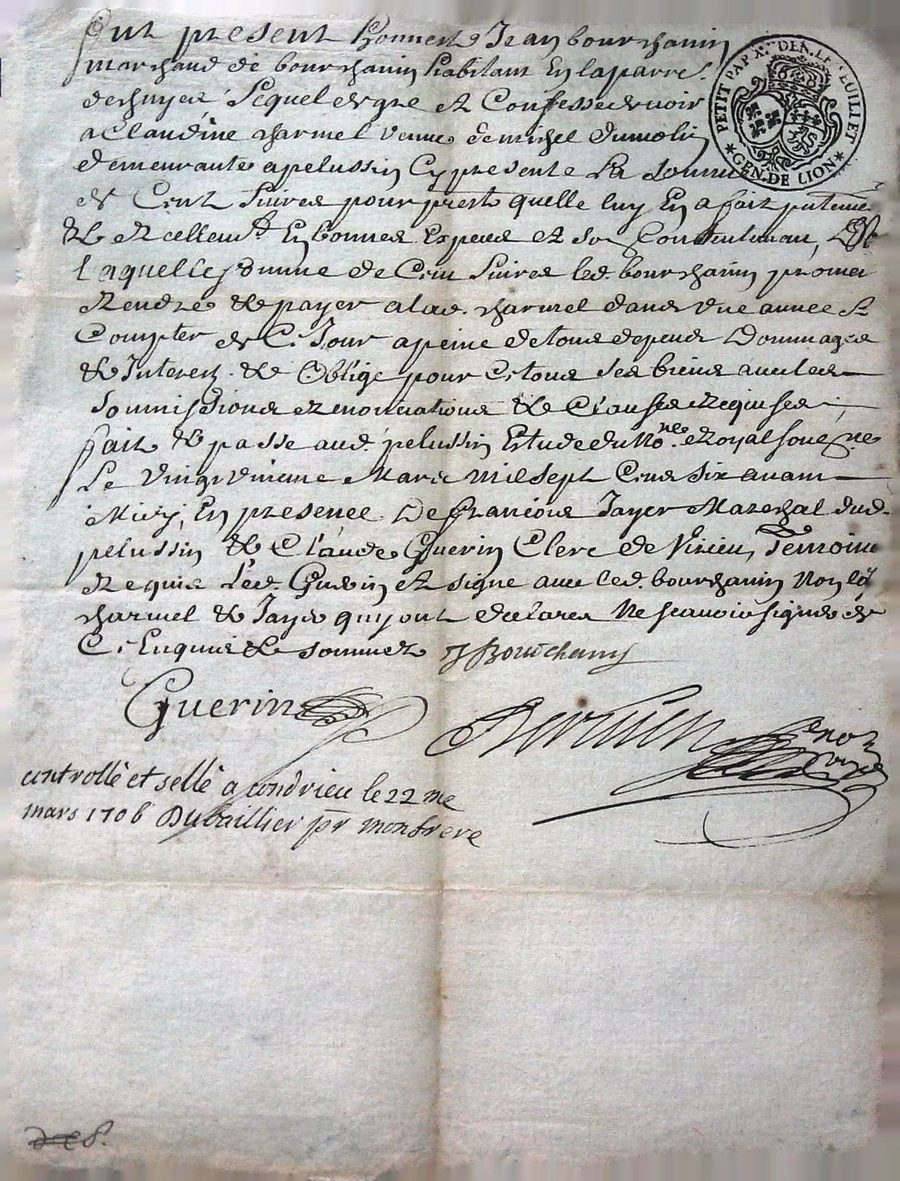 fut present honneste Jean bourchanin
marchand de bourchanin habitant En laparre.
dechuyes lequel de gre et Confesse devoir
a Claudine charmel veuve de michel dumolin
demeurante a pelussin Cy presente La somme
de Cent livres pour prest quelle luy En a fait
et reellem.t En bonnes Especes et a son Contentement,
Laquelle somme de Cent livres led. bourchanin promet
Rendre & payer a lad. charmel dans une annee a
Compter de Ce Jour a peine de tous depens Dommages
& Interest. & Oblige pour Ce tous ses biens avec les
Soumissions Renonciations & Clauses Requises
fait & passe aud. pelussin Estude du No.re Royal
Le vingtuniesme Mars mil sept Cens six avant
Midy, En presence De francois Jayer Mareschal dud.
pelussin & Claude Guerin Clerc de Virieu, Temoins
Requis Led. Guerin et signe avec led. bourchanin Non lad.
charmel & Jayer qui ont declares Ne scavoir signer de
Ce Enquis & sommez J Bourchanin
Guerin
no.re royal
controllé et sellé a condrieu le 22 me
mars 1706 Dubaillier pr mon frere
PETIT PAP. X. DEN. LE FEUILLET
★ GEN. DE LION ★